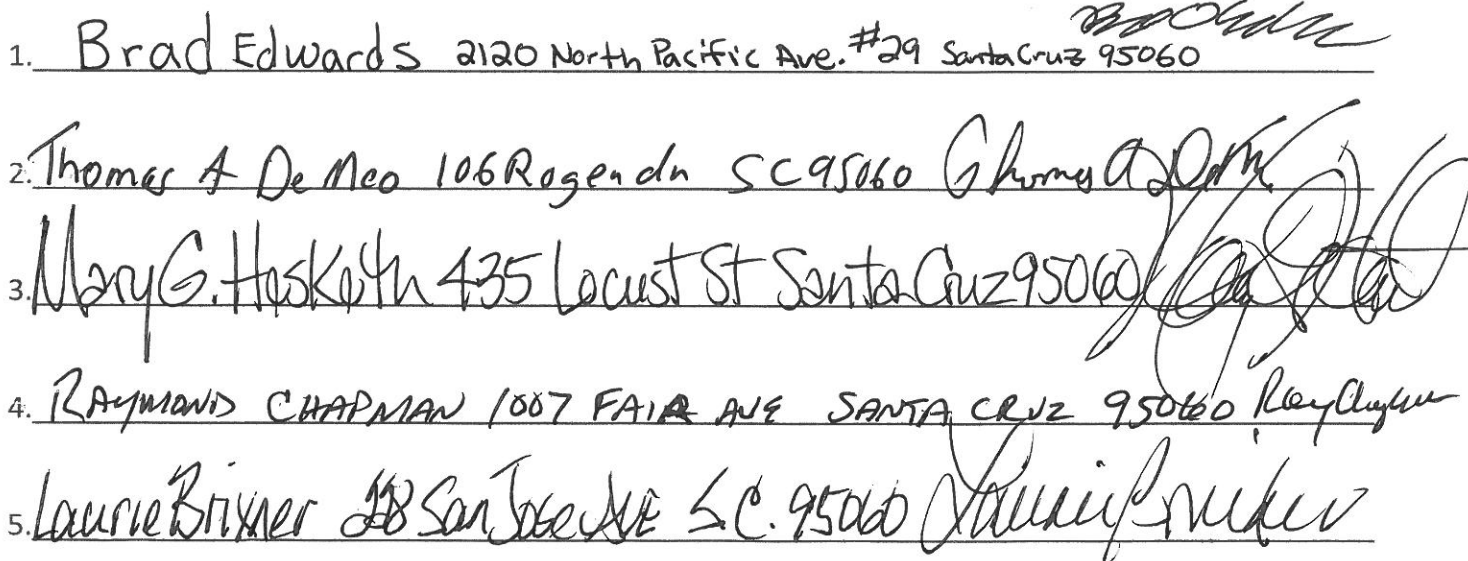 1. Brad Edwards 2120 North Pacific Ave. #29 Santa Cruz 95060
2. Thomas A De Meo 106 Rogen dn SC 95060 Thomas A De
3. Mary G. Hesketh 435 Locust St Santa Cruz 95060
4. RAYMOND CHAPMAN 1007 FAIR AVE SANTA CRUZ 95060 Ray Chapman
5. Laurie Brixner San Jose AVE S.C. 95060 Laurie Brixner